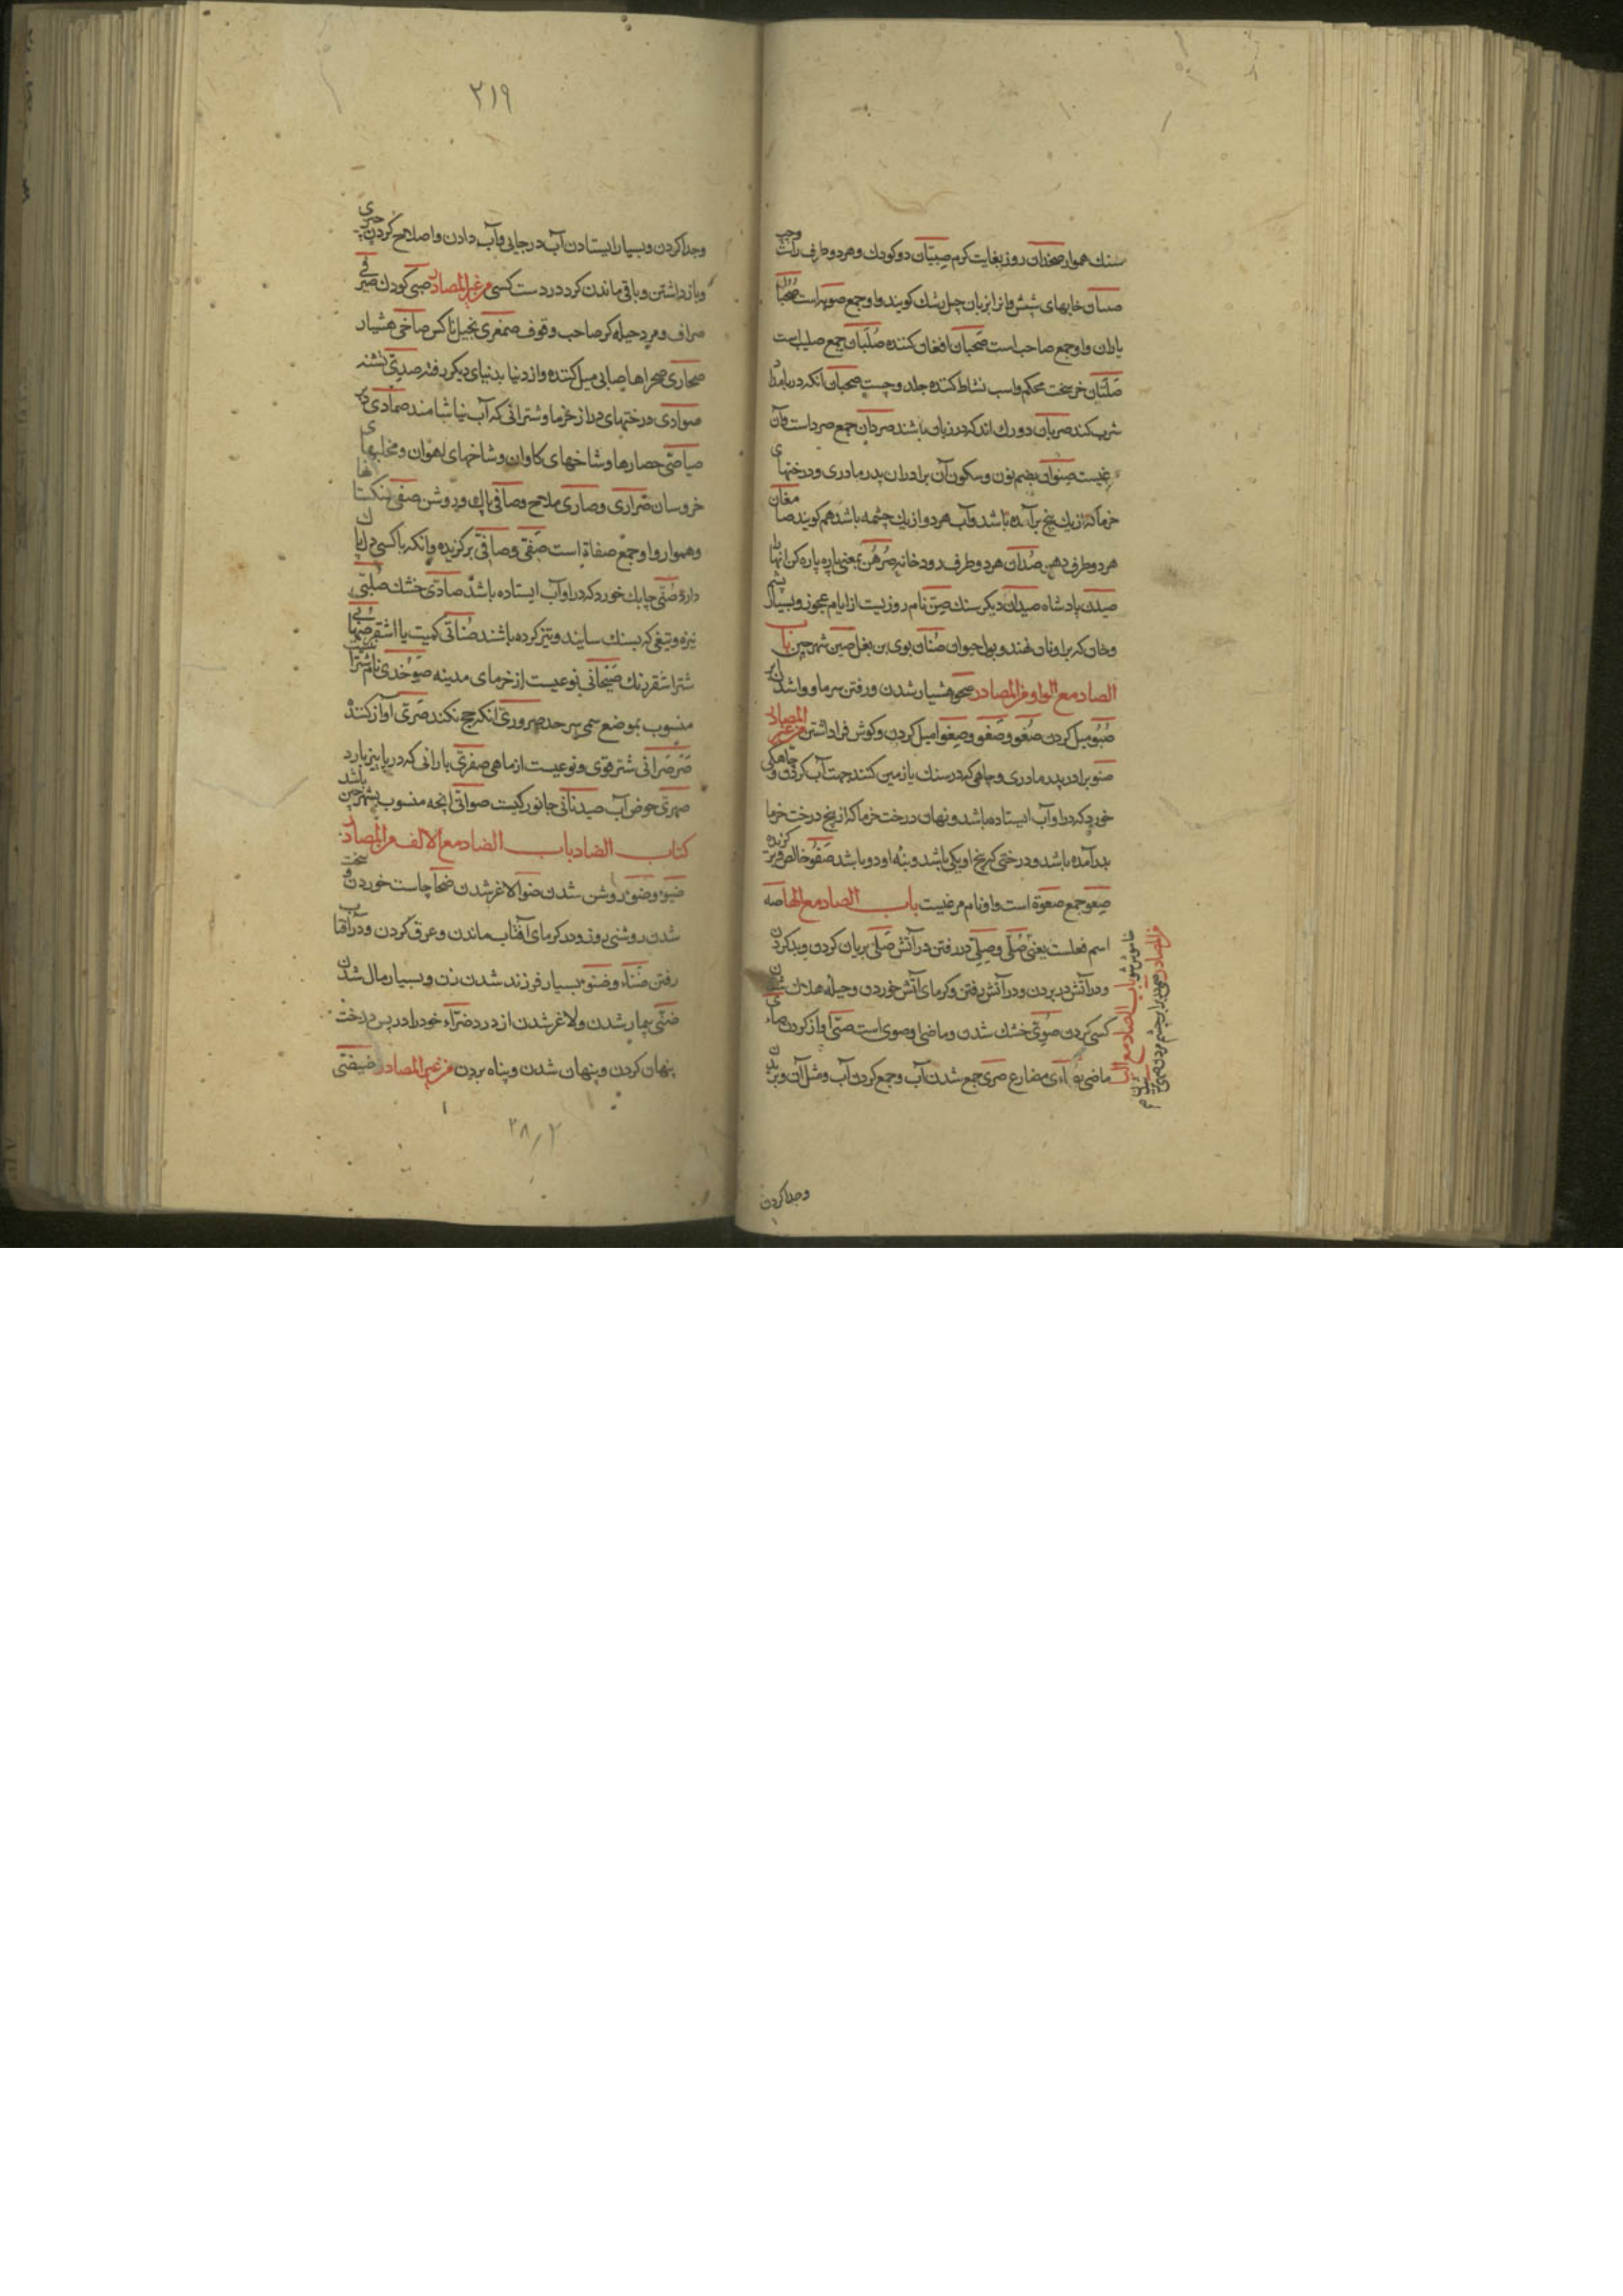 سنك هموار صخدان روز بغايت كرم صبيان دو كودك و هر دو طرف
صئبان خايهاى شپش و انرا بزبان جيل رشك كويند و او جمع صوابه است صحبان
ياران و او جمع صاحب است صخبان افغان كننده صلبان جمع صليب است
صلتان خر سخت محكم و اسب نشاط كننده جلد و چست صبحان انكه در بامداد
شرب كند صردان دو رك اند كه در زبان باشند صردان جمع صرد است و آن
مرغيست صنوان بضم نون و سكون آن برادران پدر مادرى و درختهاى
خرما كه از يك بيخ بر آمده باشد و آب هر دو از يك چشمه باشد هم كويند صامغان
هر دو طرف دهن صدان هر دو طرف رود خانه صرهن بمعنى پاره پاره كن انها را
صيدن پادشاه صيدان ديكر سنك صن نام روزيست از ايام عجوز و
و خان كه بر او نان نهند و بول حيوان صنان بوى بن بغل صين شهر چين باب
الصاد مع الواو من المصادر صحو هشيار شدن و رفتن سرما و وا شدن ابر
صبو ميل كردن صغو و صغو و صغوا ميل كردن و كوش فرا داشتن من غير المصادر
صنو برادر پدر مادرى و چاهى كه در سنك يا زمين كنند جهت آب كرفتن و چاهكى
خورد كه در او آب ايستاده باشد و نهان درخت خرما كه از بيخ درخت خرما
بدر آمده باشد و درختى كه بيخ او يكى باشد و بنه او دو باشد صفو خالص و بركزيده
صعو جمع صعوة است و او نام مرغيست باب الصاد مع الها صه
اسم فعلست يعنى
خاموش شو باب الصاد مع اليا
من المصادر
صلى و صلى در رفتن در آتش صلى بريان كردن و بد كردن
و در آتش در بردن و در آتش رفتن و كرماى آتش خوردن و حيله هلاك شدن
كسى كردن صوى خشك شدن و ماضى او صوى است صئى آواز كردن صاء
ماضى يصاءى مضارع صرى جمع شدن آب و جمع كردن آب و مثل آن و بريدن
و جدا كردن
٣١٩
و جدا كردن و بسيار ايستادن آب در جايى و آب دادن و اصلاح كردن چيزى
و باز داشتن و باقى ماندن كرد در دست كسى من غير المصادر صبى كودك صيرفى
صراف و مرد حيله كر صاحب وقوف صمغرى بخيل ناكس صاخى هشيار
صحارى صحراها صابى ميل كننده و از دنيا بدنياى ديكر رفته صدى تشنه
صوادى درختهاى دراز خرما و شترانى كه آب نياشامند صمادى
صياصى حصارها و شاخهاى كاوان و شاخهاى اهوان و مخلبهاى
خروسان صرارى و صارى ملاح و صافى پاك و روشن صفى سنكستانها
و هموار و او جمع صفاة است صفى و صافى بركزيده و آنكه با كسى دل پاك
دارد صنى چاهك خورد كه در او آب ايستاده باشد صادى خشك صلبى
نيزه و تيغى كه بسنك سايند و تيز كرده باشند صنابى كميت يا اشقر صهابى
شتر اشقر رنك صيحانى نوعيست از خرماى مدينه صوخدى نام
منسوب بموضع سمى بهر حد صرورى انكه حج نكند صرى آواز كننده
صرصرانى شتر قوى و نوعيست از ماهى صفرى بارانى كه در پاييز بارد
صهرى حوض آب صيدنانى جانوركيست صوانى انچه منسوب بشهر چين باشد
كتاب الضاد باب الضاد مع الالف من المصادر
ضوء و ضوء روشن شدن ضوا لاغر شدن ضحا چاست خوردن و سخت
شدن روشنى روز و در كرماى آفتاب ماندن و عرق كردن و در آفتاب
رفتن ضناء و ضنوء بسيار فرزند شدن زن و بسيار مال شدن
ضنى بيمار شدن و لاغر شدن از درد ضراء خود را در پس درخت
پنهان كردن و پنهان شدن و پناه بردن من غير المصادر ضيفى
٢٨/٢